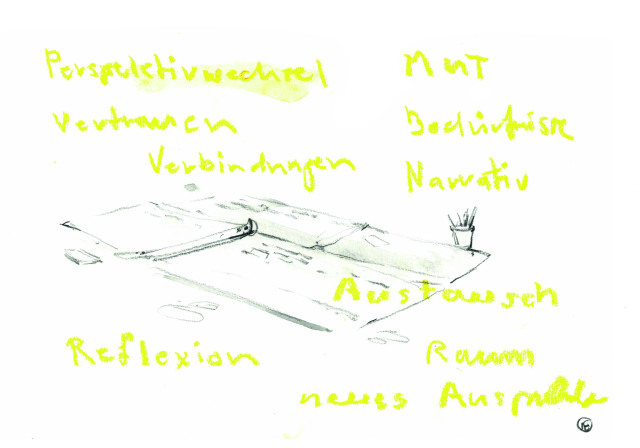 Perspektivwechsel
Mut
Vertrauen
Bedürfnisse
Verbindungen
Narrativ
Austausch
Reflexion
Raum
neues